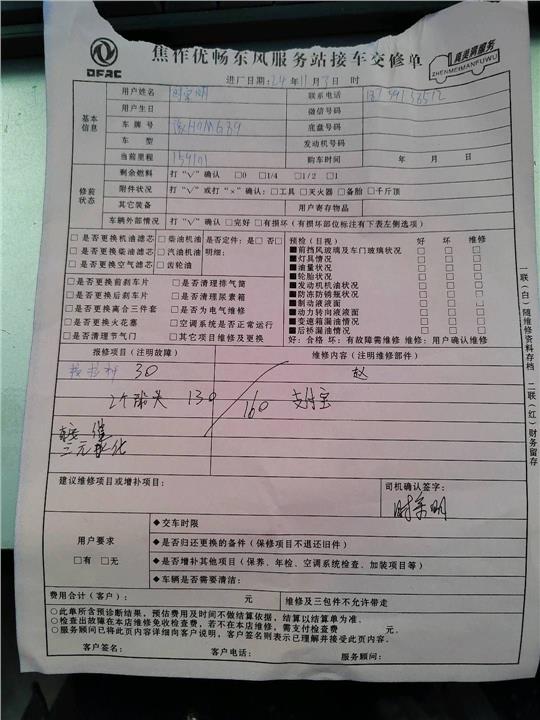 DFAC
焦作优畅东风服务站接车交修单
真美满服务
ZHENMEIMANFUWU
进厂日期：24年11月3日 时
基本信息
用户姓名 时荣明 联系电话
用户生日 微信号码
车牌号 豫H0M639 底盘号码
车型 发动机号码
当前里程 159101 购车时间 年 月 日
修前状态
剩余燃料 打“√”确认 □0 □1/4 □1/2 □1
附件状况 打“√”或打“×”确认：□工具 □灭火器 □备胎 □千斤顶
其它装备 用户寄存物品
车辆外部情况 打“√”确认 □完好 □有损坏（有损坏部位标注有下表左侧选项）
□是否更换机油滤芯 □柴油机油 是否定件：是□ 否□
□是否更换柴油滤芯 □汽油机油 明细：
□是否更换空气滤芯 □齿轮油
□是否更换前刹车片 □是否清理排气筒
□是否更换后刹车片 □是否清理尿素箱
□是否更换离合三件套 □是否为电气维修
□是否更换火花塞 □空调系统是否正常运行
□是否清理节气门 □其它项目维修及更换
预检（目视） 好 坏 维修
■前挡风玻璃及车门玻璃状况 □ □ □
■灯具情况 □ □ □
■油量状况 □ □ □
■轮胎状况 □ □ □
■发动机机油状况 □ □ □
■防冻防锈瓶状况 □ □ □
■制动液液面 □ □ □
■动力转向液液面 □ □ □
■变速箱漏油情况 □ □ □
■后桥漏油情况 □ □ □
好：合格 坏：有故障需维修 维修：用户确认维修
报修项目（注明故障） 维修内容（注明维修部件）
30 赵
2个球头 130 160 支付宝
三元催化
建议维修项目或增补项目：
司机确认签字：
时荣明
用户要求
□有 □无
◆交车时限
◆是否归还更换的备件（保修项目不退还旧件）
◆是否增补其他项目（保养、年检、空调系统检查、加装项目等）
◆车辆是否需要清洁：
费用合计（客户）： 元 维修及三包件不允许带走
○此单所含预诊断结果，预估费用及时间不做结算依据，结算以结算单为准。
○检查出故障在本店维修免收检查费，若不在本店维修，需支付检查费 元。
○服务顾问已将此页内容详细向客户说明，客户签名则表示已理解并接受此页内容。
客户签名： 客户电话： 服务顾问：
一联（白）随维修资料存档 二联（红）财务留存